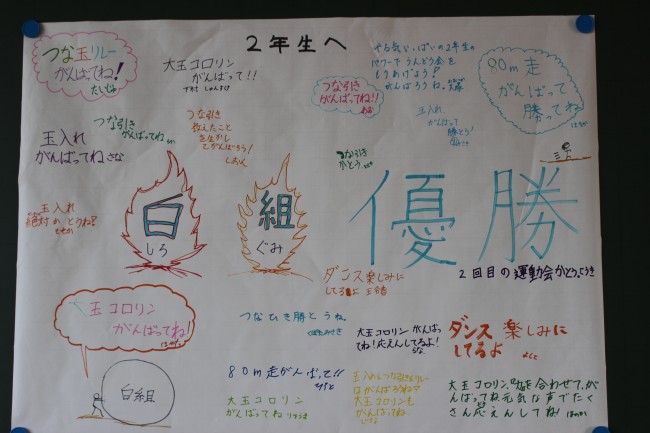 2年生へ
つな玉リレー
がんばってね!
たいじゅ
大玉コロリン
がんばって!!
つな引き
がんばってね!
やる気いっぱいの2年生の
パワーでうんどう会を
もりあげよう!
がんばろうね。
80m走
がんばって
勝ってね
玉入れ
がんばってね
つな引き
がんばってね
つな引き
教えたこと
を生かし
てがんばろう!
しおん
玉入れ
がんばって
勝とう!
つな引き
かとう
玉入れ
絶対かとうね!
白
しろ
組
ぐみ
優勝
2回目の運動会かとう
ダンス楽しみに
してるよ
大玉コロリン
がんばってね!
つなひき勝とうね。
大玉コロリンがんばっ
てね!応えんしてるよ!
ダンス楽しみに
してるよ
白組
80m走がんばって!!
大玉コロリン
がんばってね
玉入れとつな引きとリレー
はがんばろうね?
大玉コロリンも
がんばってね
大玉コロリン、力を合わせて、が
んばってね元気な声でたく
さん応えんしてね!